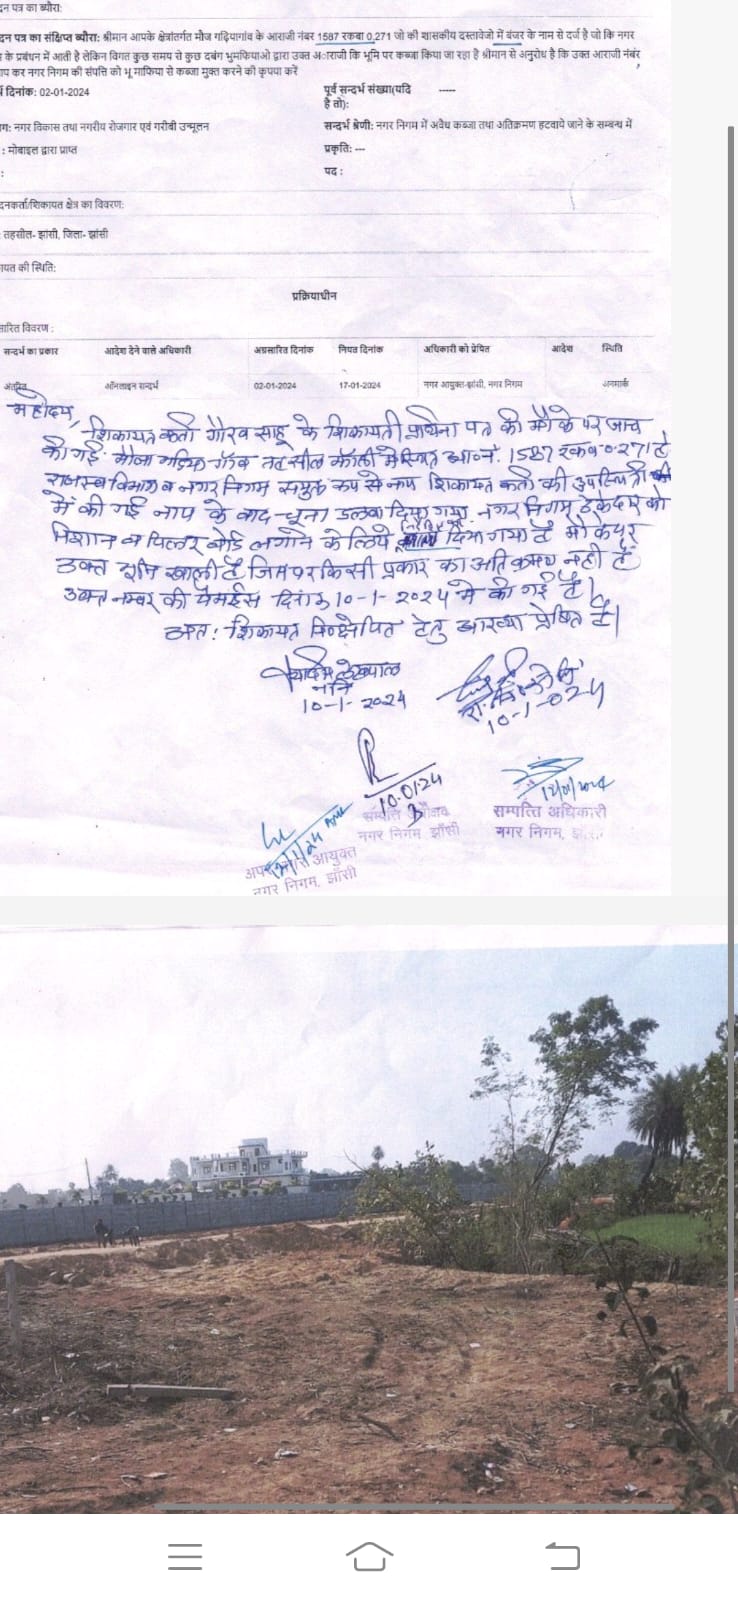 दन पत्र का ब्यौरा:
दन पत्र का संक्षिप्त ब्यौरा: श्रीमान आपके क्षेत्रांतर्गत मौज गढ़ियागांव के आराजी नंबर 1587 रकबा 0.271 जो की शासकीय दस्तावेजो में बंजर के नाम से दर्ज है जो कि नगर
के प्रबंधन में आती है लेकिन विगत कुछ समय से कुछ दबंग भुमफियाओ द्वारा उक्त अाराजी कि भूमि पर कब्जा किया जा रहा है श्रीमान से अनुरोध है कि उक्त आराजी नंबर
प कर नगर निगम की संपत्ति को भू माफिया से कब्जा मुक्त करने की कृपया करें
दिनांक: 02-01-2024
पूर्व सन्दर्भ संख्या(यदि -----
है तो):
ग: नगर विकास तथा नगरीय रोजगार एवं गरीबी उन्मूलन
सन्दर्भ श्रेणी: नगर निगम में अवैध कब्जा तथा अतिक्रमण हटवाये जाने के सम्बन्ध में
: मोबाइल द्वारा प्राप्त
प्रकृति: ---
:
पद :
दनकर्ता/शिकायत क्षेत्र का विवरण:
तहसील- झांसी, जिला- झांसी
ायत की स्थिति:
प्रक्रियाधीन
सारित विवरण :
सन्दर्भ का प्रकार आदेश देने वाले अधिकारी अग्रसारित दिनांक नियत दिनांक अधिकारी को प्रेषित आदेश स्थिति
अंतरित ऑनलाइन सन्दर्भ 02-01-2024 17-01-2024 नगर आयुक्त-झांसी, नगर निगम अनमार्क
महोदय,
शिकायत कर्ता गौरव साहू के शिकायती प्रार्थना पत्र की मौके पर जांच
की गई. मौजा गढिया गाँव तहसील झाँसी में स्थित आ०नं. 1587 रकबा 0.271 हे
राजस्व विभाग व नगर निगम संयुक्त रूप से नाप शिकायत कर्ता की उपस्थिती
में की गई नाप के बाद चूना डलवा दिया गया. नगर निगम ठेकेदार को
निशान व पिलर बोर्ड लगाने के लिये निर्देश दिया गया है मौके पर
उक्त भूमि खाली है जिस पर किसी प्रकार का अतिक्रमण नही है
उक्त नम्बर की पैमाईस दिनांक 10-1-2024 मे की गई है|
अतः शिकायत निक्षेपित हेतु आख्या प्रेषित है|
लेखपाल
ननि
10-1-2024
10-1-024
10.01.24
सम्पत्ति
नगर निगम, झाँसी
सम्पत्ति अधिकारी
नगर निगम, झाँसी
अपर नगर आयुक्त
नगर निगम, झाँसी